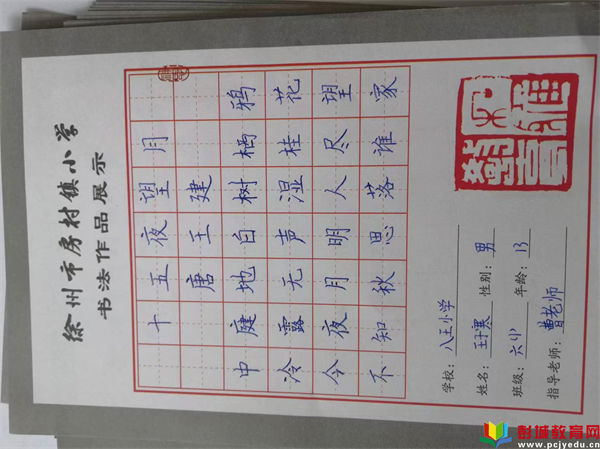 徐州市房村镇小学
书法作品展示
十五夜望月
唐王建
中庭地白树栖鸦
冷露无声湿桂花
今夜月明人尽望
不知秋思落谁家
学校：八王小学
姓名： 性别：男
班级： 年龄：13
指导老师：曹老师
彭城教育网
www.pcjyedu.cn